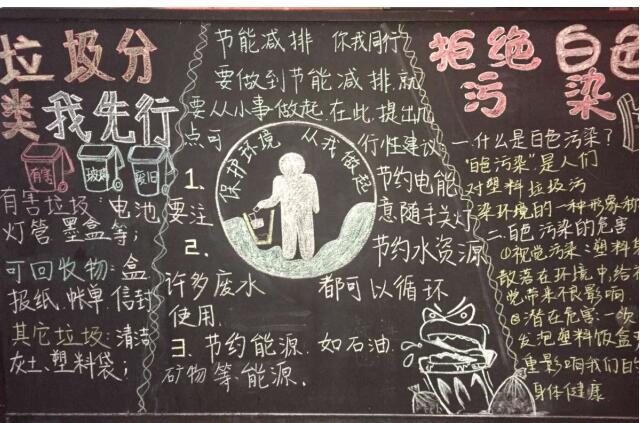 垃圾分
类我先行
有害
玻璃
废旧
有害垃圾:电池
灯管 墨盒等;
可回收物:盒
报纸.帐单 信封
其它垃圾:清洁
灰土、塑料袋;
节能减排 你我同行
要做到节能减排,就
要从小事做起.在此,提出几
点可行性建议:
保护环境 从我做起
1.节约电能
要注意随手关灯
2.节约水资源
许多废水都可以循环
使用.
3.节约能源.如石油.
矿物等能源.
拒绝白色
污染
一.什么是白色污染?
"白色污染"是人们
对塑料垃圾污
染环境的一种形象称
二.白色污染的危害
①视觉污染:塑料
散落在环境中,给
觉带来不良影响
②潜在危害:一次
发泡塑料饭盒
重影响我们
身体健康